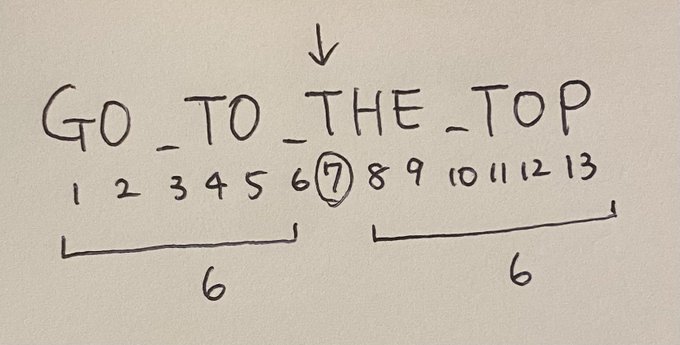 ↓
GO_TO_THE_TOP
1 2 3 4 5 6 7 8 9 10 11 12 13
6 6